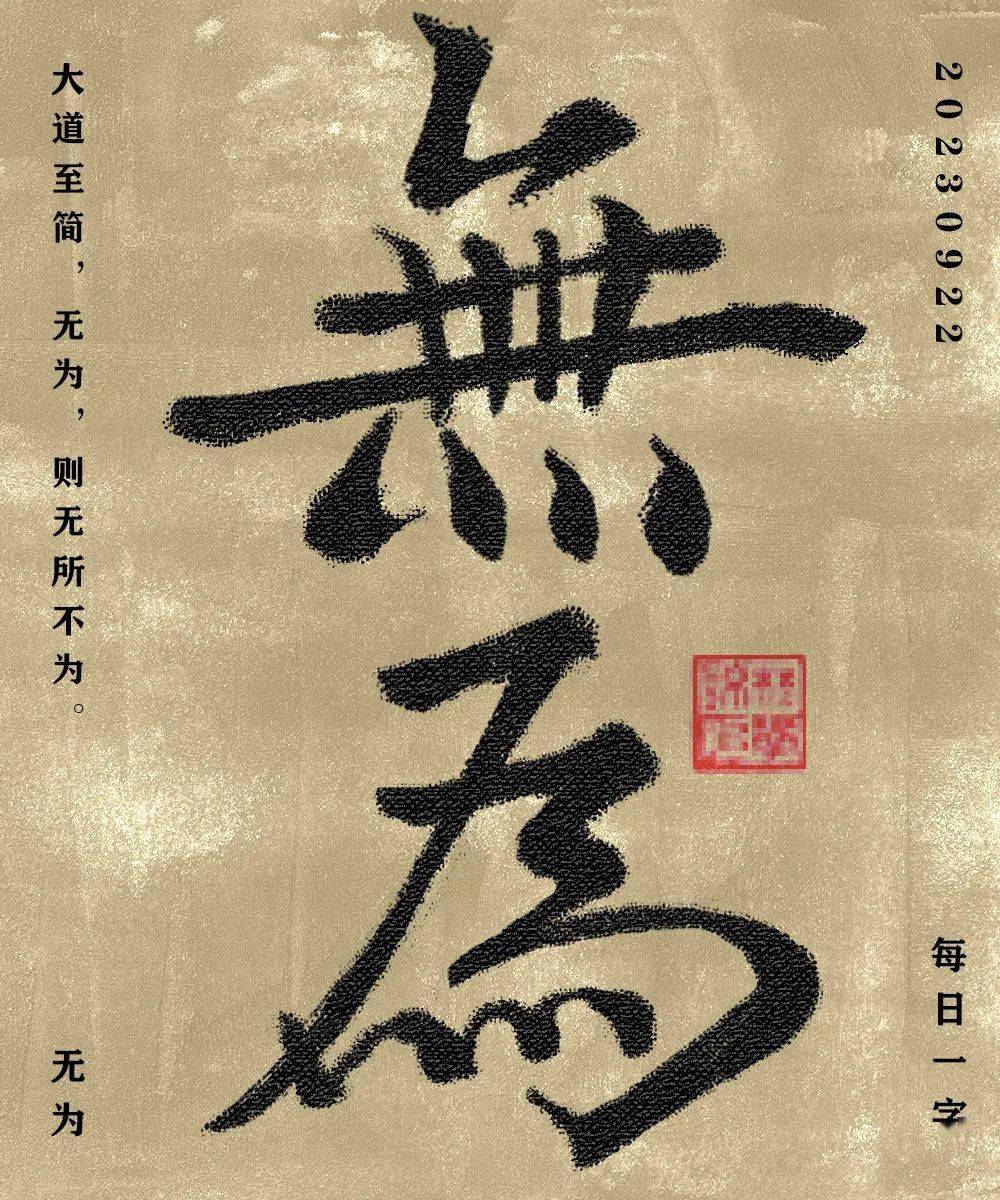 無為
大道至简，无为，则无所不为。
无为
20230922
每日一字